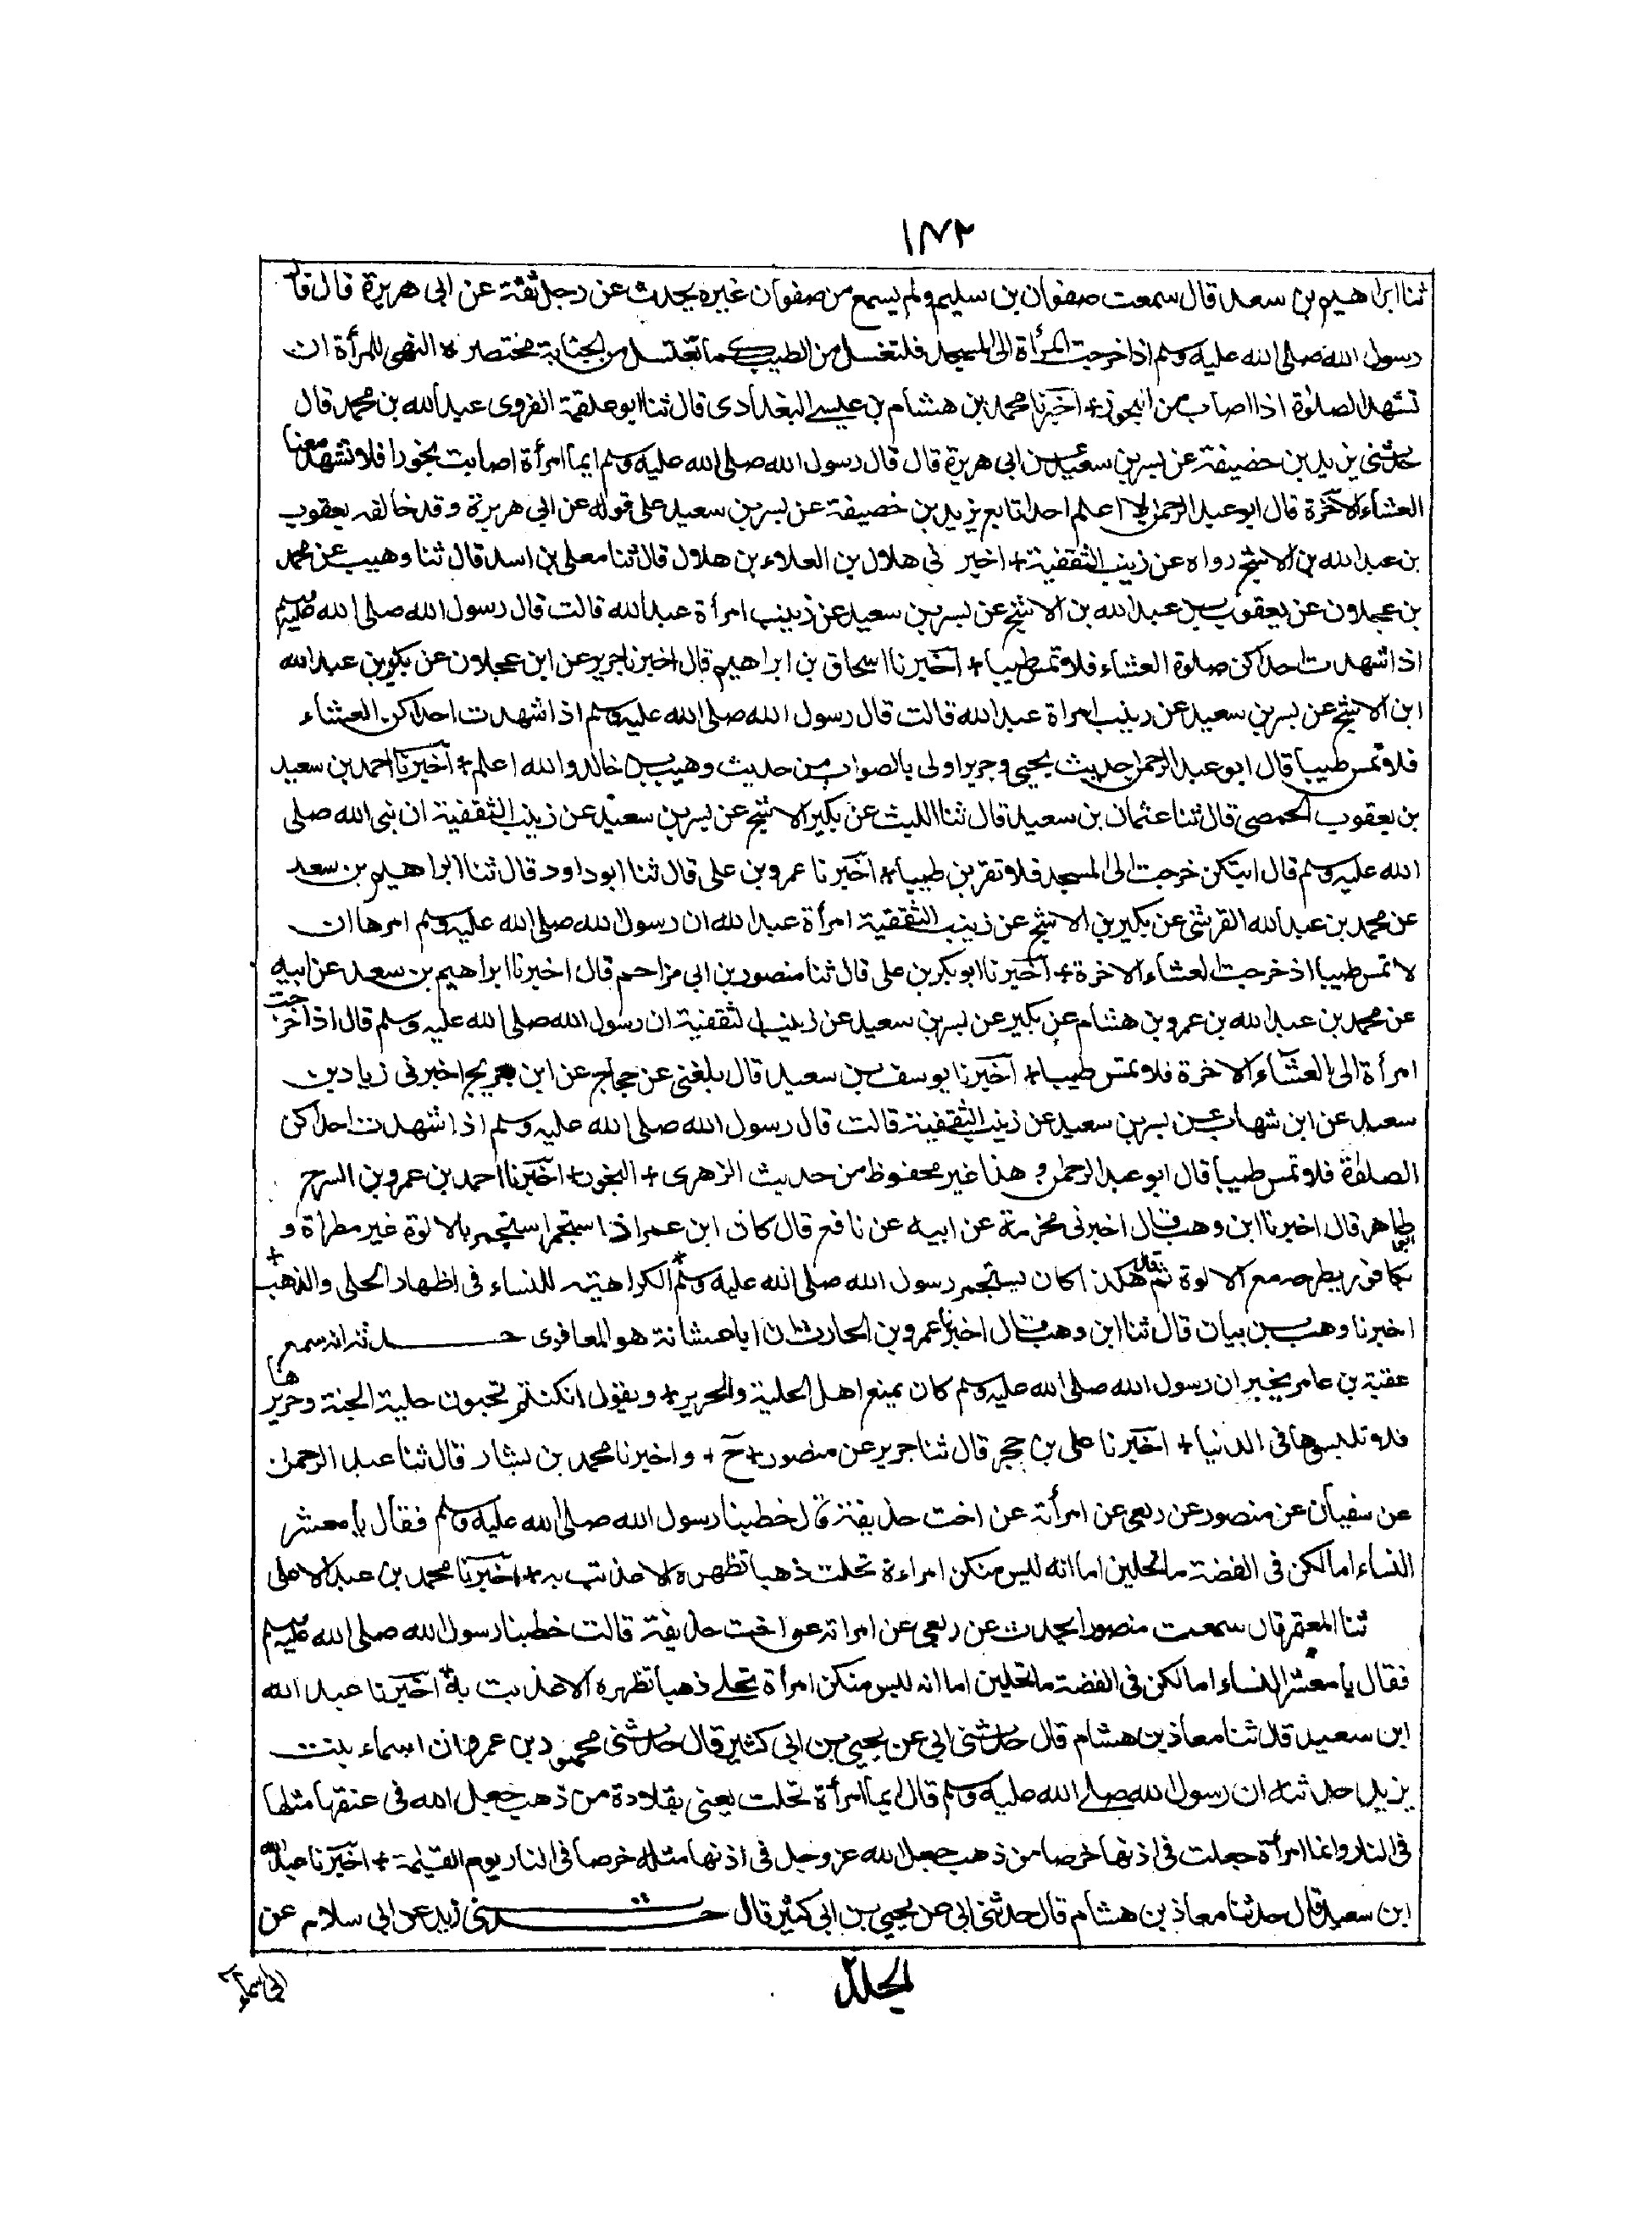 ١٨٢
ثنا ابراهيم بن سعد قال سمعت صفوان بن سليم ولم يسمع من صفوان غيره يحدث عن رجل ثقة عن ابى هريرة قال قال
رسول الله صلى الله عليه وسلم اذا خرجت المرأة الى المسجد فلتغتسل من الطيب كما تغتسل من الجنابة مختصره النهى للمرأة ان
تشهد الصلوة اذا اصابت من البخور + اخبرنا محمد بن هشام بن عيسى البغدادى قال ثنا ابو علقمة الفروى عبد الله بن محمد قال
حدثنى يزيد بن خصيفة عن بسر بن سعيد عن ابى هريرة قال قال رسول الله صلى الله عليه وسلم ايما امرأة اصابت بخورا فلا تشهد معنا
العشاء الآخرة قال ابو عبد الرحمن لا اعلم احدا تابع يزيد بن خصيفة عن بسر بن سعيد على قوله عن ابى هريرة وقد خالفه يعقوب
بن عبد الله بن الاشج رواه عن زينب الثقفية + اخبر نى هلال بن العلاء بن هلال قال ثنا معلى بن اسد قال ثنا وهيب عن محمد
بن عجلان عن يعقوب بن عبد الله بن الاشج عن بسر بن سعيد عن زينب امرأة عبد الله قالت قال رسول الله صلى الله عليه وسلم
اذا شهدت احداكن صلوة العشاء فلا تمس طيبا + اخبرنا اسحاق بن ابراهيم قال اخبرنا جرير عن ابن عجلان عن بكير بن عبد الله
ابن الاشج عن بسر بن سعيد عن زينب امراة عبد الله قالت قال رسول الله صلى الله عليه وسلم اذا شهدت احداكن العشاء
فلا تمس طيبا قال ابو عبد الرحمن حديث يحيى وجرير اولى بالصواب من حديث وهيب بن خالد والله اعلم + اخبرنا احمد بن سعيد
بن يعقوب الحمصى قال ثنا عثمان بن سعيد قال ثنا الليث عن بكير الاشج عن بسر بن سعيد عن زينب الثقفية ان نبى الله صلى
الله عليه وسلم قال ايتكن خرجت الى المسجد فلا تقربن طيبا + اخبرنا عمرو بن على قال ثنا ابو داود قال ثنا ابراهيم بن سعد
عن محمد بن عبد الله القرشى عن بكير بن الاشج عن زينب الثقفية امرأة عبد الله ان رسول الله صلى الله عليه وسلم امرها ان
لا تمس طيبا اذ خرجت العشاء الاخرة + اخبرنا ابو بكر بن على قال ثنا منصور بن ابى مزاحم قال اخبرنا ابراهيم بن سعد عن ابيه
عن محمد بن عبد الله بن عمرو بن هشام عن بكير عن بسر بن سعيد عن زينب الثقفية ان رسول الله صلى الله عليه وسلم قال اذا خرجت
امرأة الى العشاء الاخرة فلا تمس طيبا + اخبرنا يوسف بن سعيد قال بلغنى عن حجاج عن ابن جريج اخبرنى زياد بن
سعد عن ابن شهاب عن بسر بن سعيد عن زينب الثقفية قالت قال رسول الله صلى الله عليه وسلم اذا شهدت احداكن
الصلوة فلا تمس طيبا قال ابو عبد الرحمن و هذا غير محفوظ من حديث الزهرى + البخور + اخبرنا احمد بن عمرو بن السرح
ابو طاهر قال اخبرنا ابن وهب قال اخبرنى مخرمة عن ابيه عن نافع قال كان ابن عمر اذا استجمر استجمر بالالوة غير مطراة و
بكافور يطرحه مع الالوة ثم قال هكذا كان يستجمر رسول الله صلى الله عليه وسلم + الكراهية للنساء فى اظهار الحلى والذهب +
اخبرنا وهب بن بيان قال ثنا ابن وهب قال اخبرنا عمرو بن الحارث ان ابا عشانة هو المعافرى حدثه انه سمع
عقبة بن عامر يخبر ان رسول الله صلى الله عليه وسلم كان يمنع اهل الحلية والحرير + ويقول ان كنتم تحبون حلية الجنة وحريرها
فلا تلبسوها فى الدنيا + اخبرنا على بن حجر قال ثنا جرير عن منصور + ح + واخبرنا محمد بن بشار قال ثنا عبد الرحمن
عن سفيان عن منصور عن ربعى عن امرأته عن اخت حذيفة قال خطبنا رسول الله صلى الله عليه وسلم فقال يا معشر
النساء اما لكن فى الفضة ما تحلين اما انه ليس منكن امراءة تحلت ذهبا تظهره الا عذبت به + اخبرنا محمد بن عبد الاعلى
ثنا المعتمر قال سمعت منصورا يحدث عن ربعى عن امراته عن اخت حذيفة قالت خطبنا رسول الله صلى الله عليه وسلم
فقال يا معشر النساء اما لكن فى الفضة ما تحلين اما انه ليس منكن امرأة تحلى ذهبا تظهره الا عذبت به + اخبرنا عبد الله
ابن سعيد قال ثنا معاذ بن هشام قال حدثنى ابى عن يحيى بن ابى كثير قال حدثنى محمود بن عمرو ان اسماء بنت
يزيد حدثته ان رسول الله صلى الله عليه وسلم قال ايما امرأة تحلت يعنى بقلادة من ذهب جعل الله فى عنقها مثلها
فى النار وايما امرأة جعلت فى اذنها خرصا من ذهب جعل الله عز وجل فى اذنها مثله خرصا فى النار يوم القيٰمة + اخبرنا عبد الله
ابن سعيد قال حدثنا معاذ بن هشام قال حدثنى ابى عن يحيى بن ابى كثير قال حدثنى زيد عن ابى سلام عن
ابى اسماء